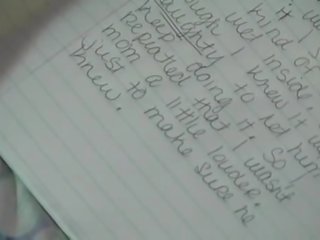 it
kind of
wet inside,
I knew it
naughty to let him
help doing it, so I
repeated that I wasn't
mom a little louder,
Just to make sure he
knew.